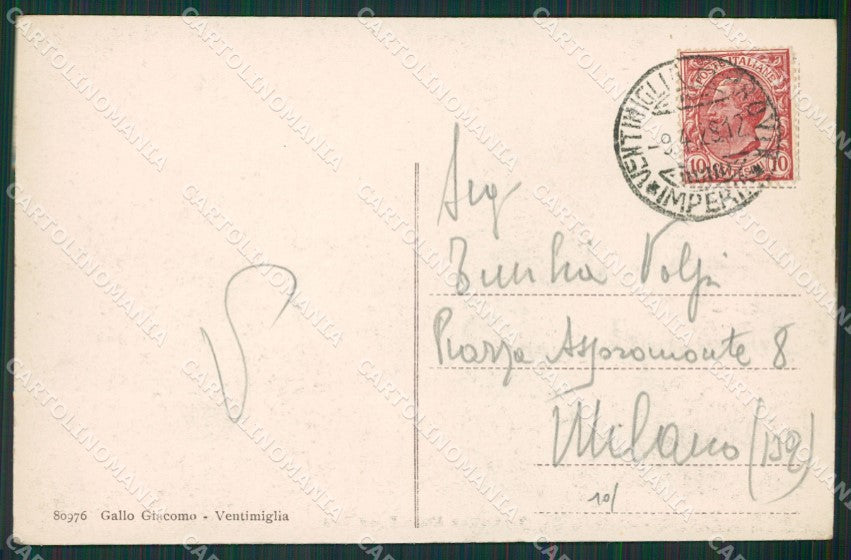 POSTE ITALIANE
10 10
VENTIMIGLIA
IMPERIA
Sig
Emilia Volpi
Piazza Aspromonte 8
Milano (132)
10/
80976 Gallo Giacomo - Ventimiglia
CARTOLINOMANIA